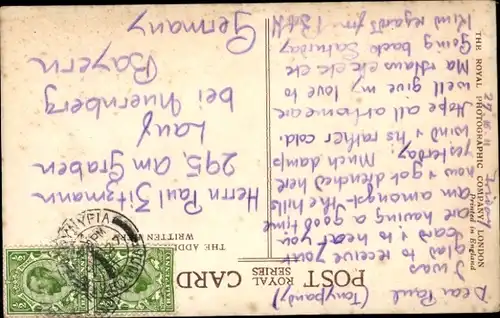 THE ROYAL PHOTOGRAPHIC COMPANY LONDON
Printed in England
POST CARD
ROYAL
SERIES
THE ADDRE
WRITTEN HERE
Dear Paul (Tonypandy)
I was
glad to receive your
card & to hear you
are having a good time
am amongst the hills
now & got drenched here
yesterday. Much damp
wind & his rather cold.
Hope all at home are
well give my love to
Ma & Hans etc etc
Going back Saturday
Kind regards from
Herrn Paul Zitzmann
295, Am Graben
Lauf
bei Nuernberg
Bayern
Germany